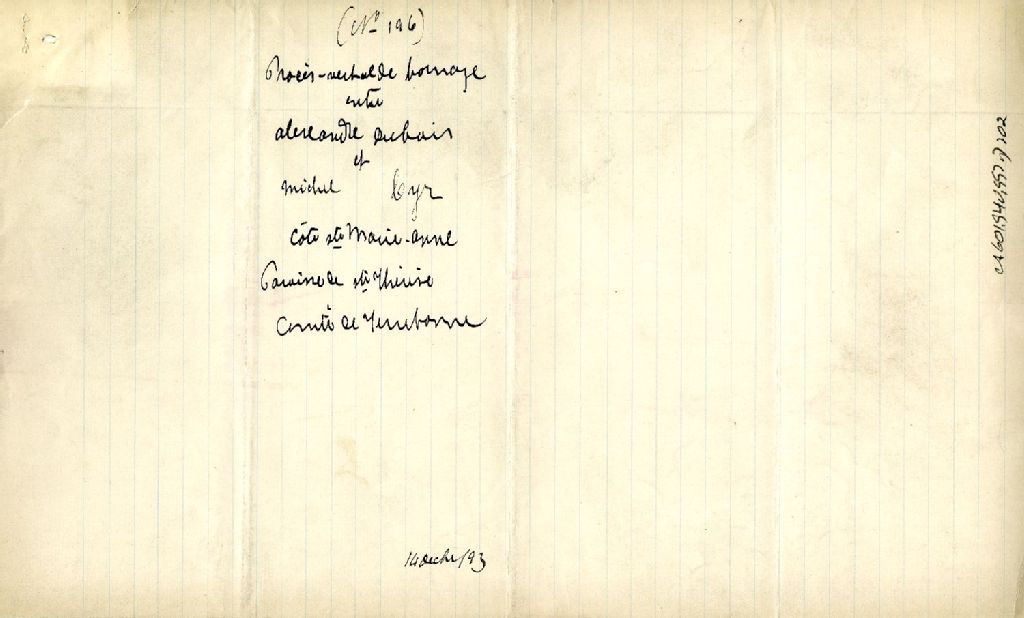 (No 196)
Procès-verbal de bornage
entre
alexandre Dubois
et
Michel Cyr
Côte ste Marie-Anne
Paroisse de ste Thérèse
Comté de Terrebonne
14 décbre/93
CA601,S40,SS2,D202